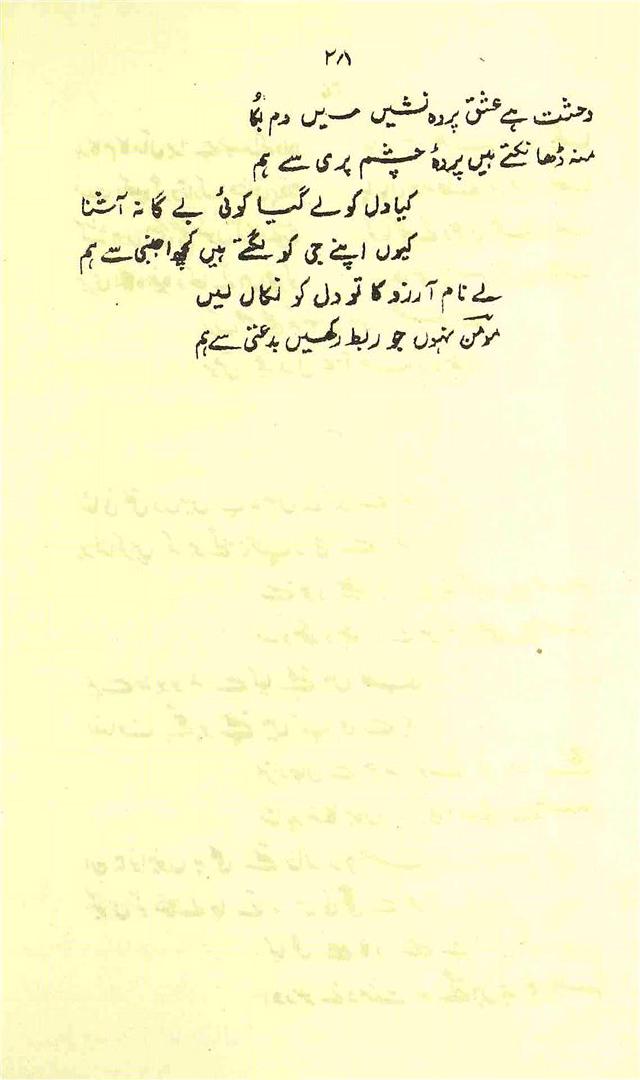 ۲۸۱
وحشت ہے عشق پردہ نشیں میں دم بکا
منہ ڈھانکتے ہیں پردۂ چشم پری سے ہم
کیا دل کو لے گیا کوئی بے گانہ آشنا
کیوں اپنے جی کو لگتے ہیں کچھ اجنبی سے ہم
لے نام آرزو کا تو دل کو نکال لیں
مومن نہوں جو ربط رکھیں بدعتی سے ہم